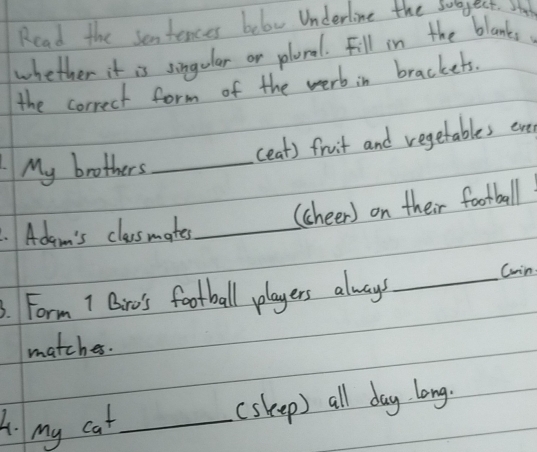 Read the sentences below Underline the subject. State
whether it is singular or plural. Fill in the blanks
the correct form of the verb in brackets.
My brothers ________ (eat) fruit and vegetables ever
2. Adam's classmates ________ (cheer) on their football
3. Form 1 Biro's football players always ________ (win
matches.
4. My cat ________ (sleep) all day long.